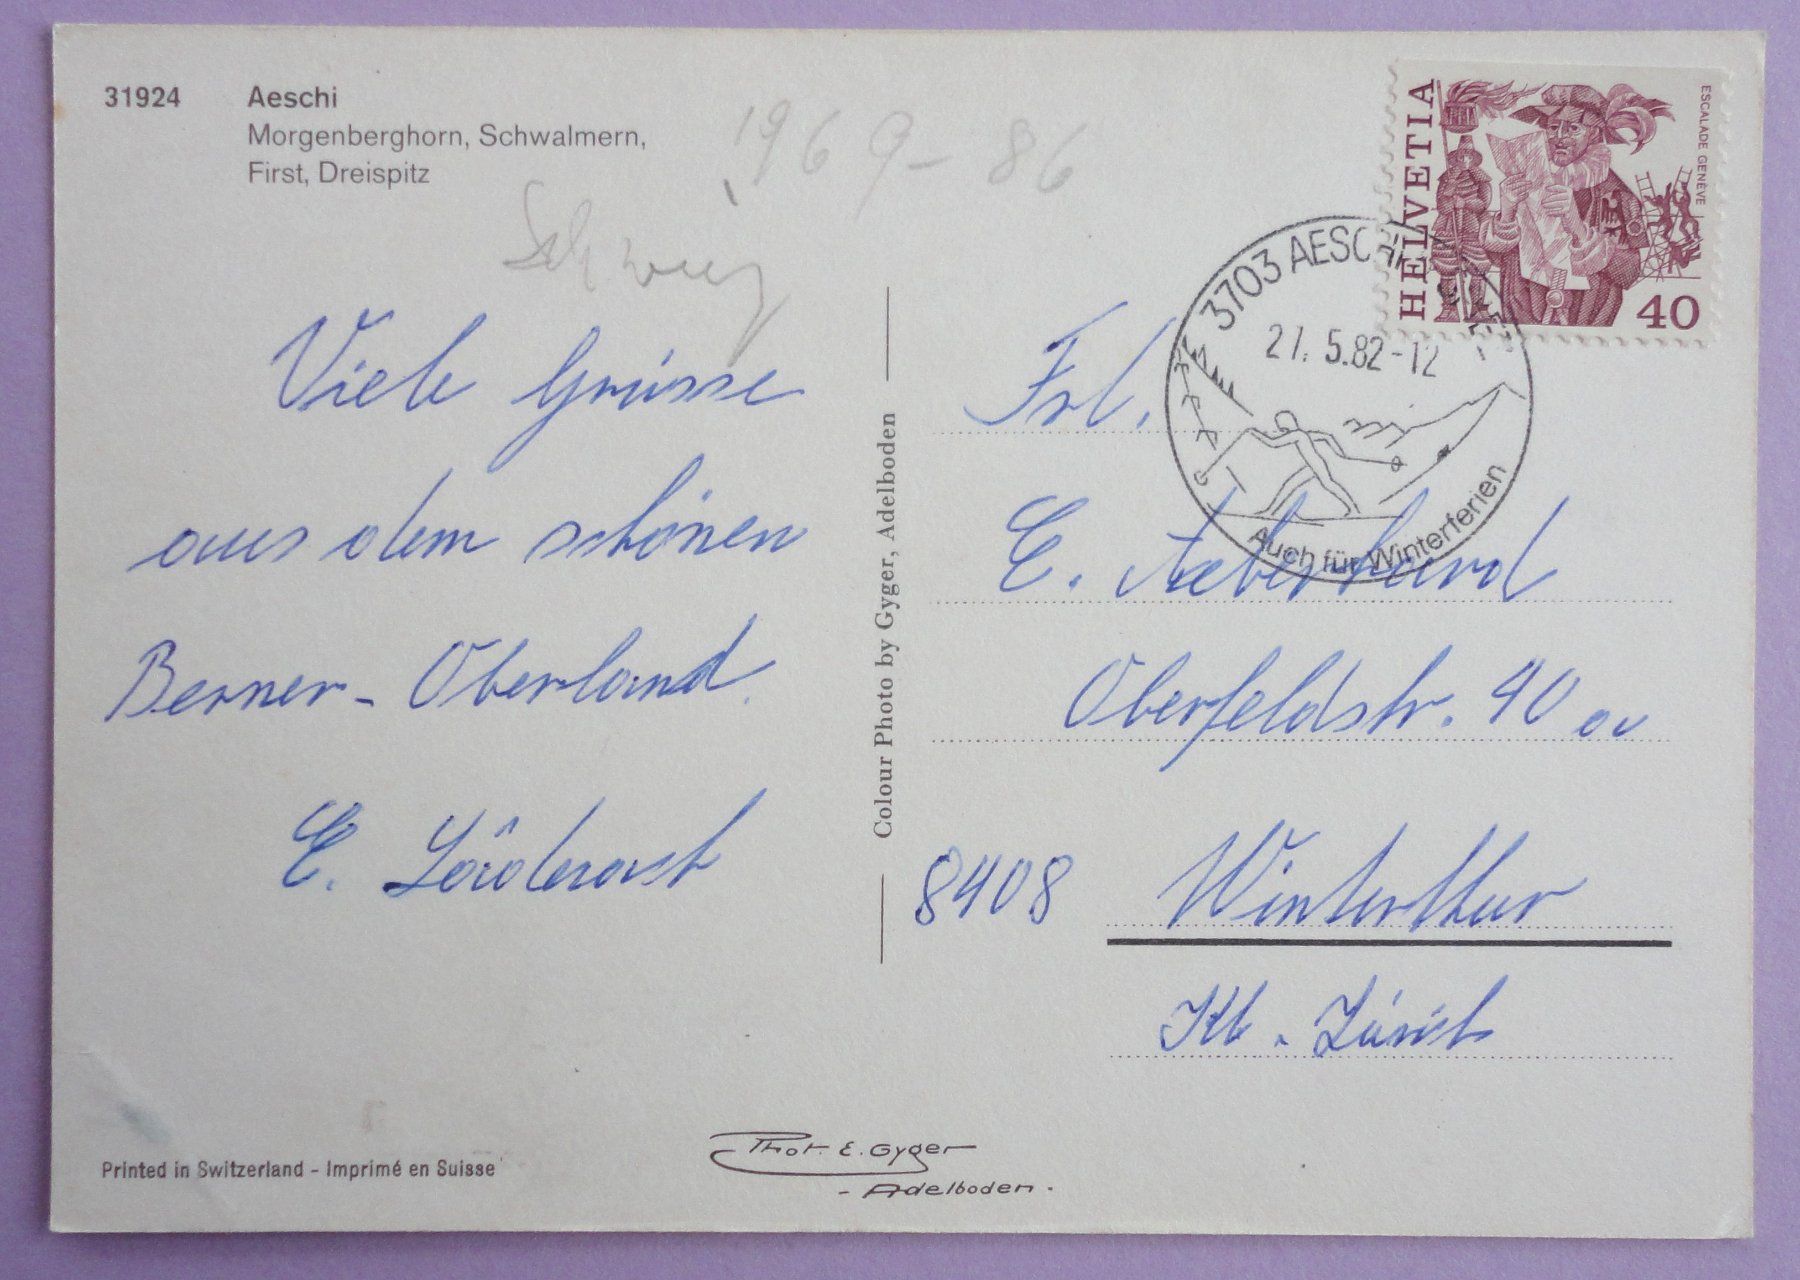 31924 Aeschi
Morgenberghorn, Schwalmern,
First, Dreispitz
1969-86
Schweiz
Viele Grüsse
aus dem schönen
Berner-Oberland.
E.
Colour Photo by Gyger, Adelboden
HELVETIA
ESCALADE GENÈVE
40
3703 AESCHI
5.82-12
Auch für Winterferien
Frl.
E. Aeberhard
Oberfeldstr. 40 a
8408 Winterthur
Kt. Zürich
Printed in Switzerland - Imprimé en Suisse
Phot. E. Gyger
- Adelboden -